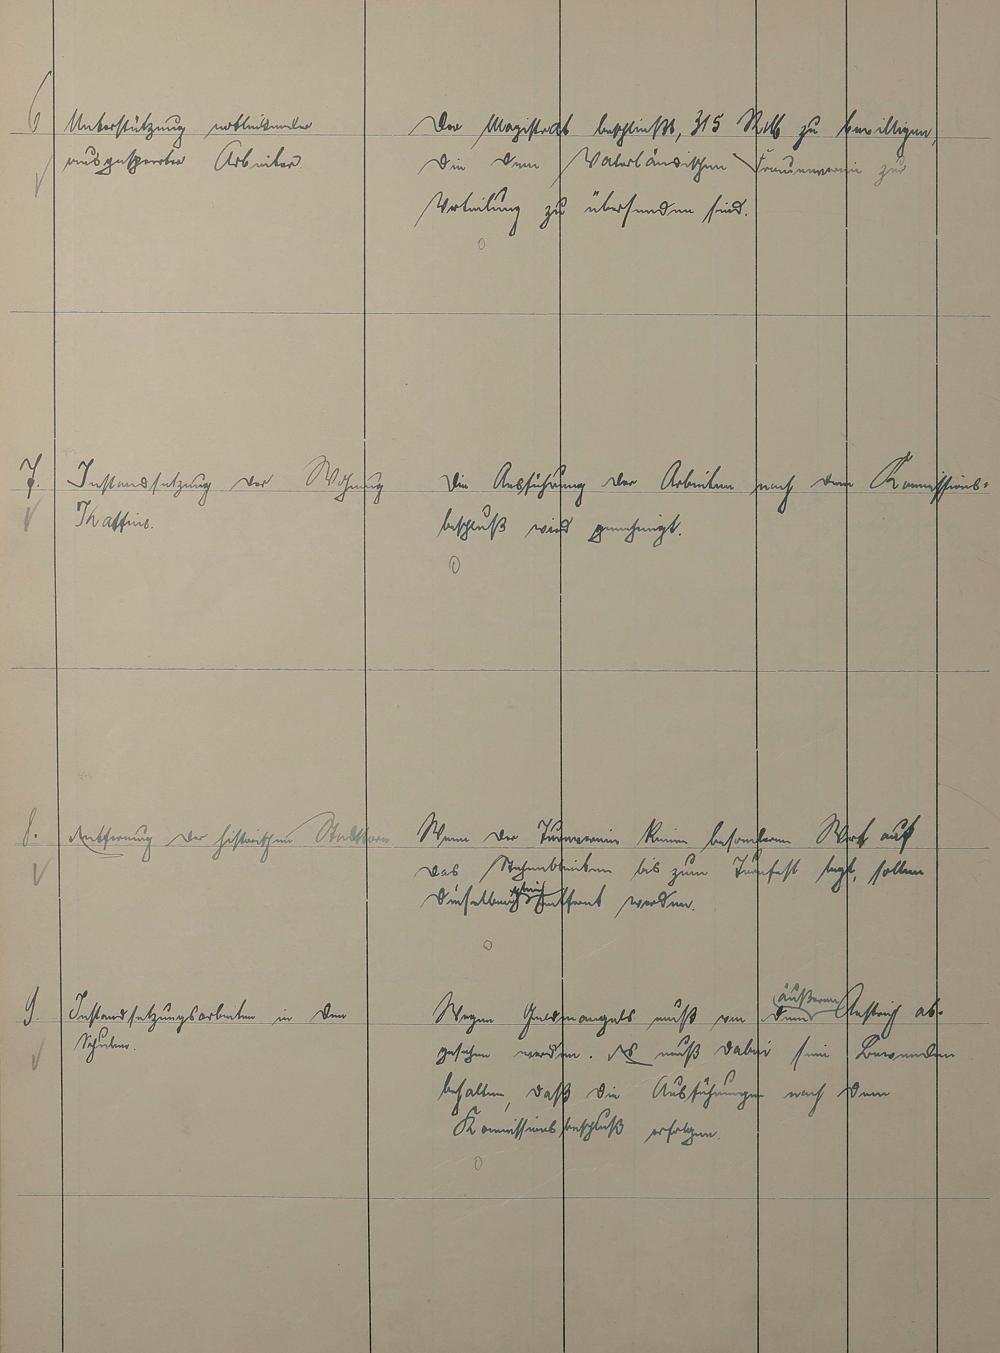 6
Unterstützung notleidender
ausgesperrter Arbeiter.
Der Magistrat beschließt, 315 RM zu bewilligen,
die dem Vaterländischen Frauenverein zur
Verteilung zu übersenden sind.
7.
Instandsetzung der Wohnung
Die Ausführung der Arbeiten nach dem Kommissions-
beschluß wird genehmigt.
8.
Entfernung der historischen
Wenn der Turnverein keinen besonderen Wert auf
das Stehenbleiben bis zum Turnfest legt, sollen
dieselben gleich entfernt werden.
9
Instandsetzungsarbeiten in den
Schulen.
Wegen Geldmangels muß von dem äußeren Anstrich ab-
gesehen werden. Es muß dabei sein Bewenden
behalten, daß die Ausführungen nach dem
Kommissionsbeschluß erfolgen.